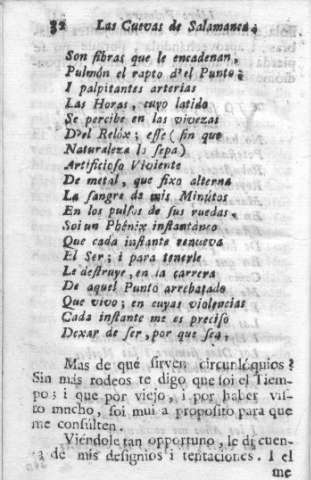 32 Las Cuevas de Salamanca;
Son fibras que le encadenan,
Pulmón el rapto d'el Punto;
I palpitantes arterias
Las Horas, cuyo latido
Se percibe en las vivezas
D'el Relóx; esse (sin que
Naturaleza lo sepa)
Artificioso Viviente
De metal, que fixo alterna
La sangre de mis Minutos
En los pulsos de sus ruedas.
Soi un Phénix instantáneo
Que cada instante renueva
El Ser; i para tenerle
Le destruye, en la carrera
De aquel Punto arrebatado
Que vivo; en cuyas violencias
Cada instante me es preciso
Dexar de ser, por que sea,
Mas de qué sirven circunlóquios?
Sin más rodeos te digo que soi el Tiem-
po; i que por viejo, i por haber vis-
to mucho, soi mui a proposito para que
me consulten.
Viéndole tan opportuno, le dí cuen-
ta de mis designios i tentaciones. I el
me